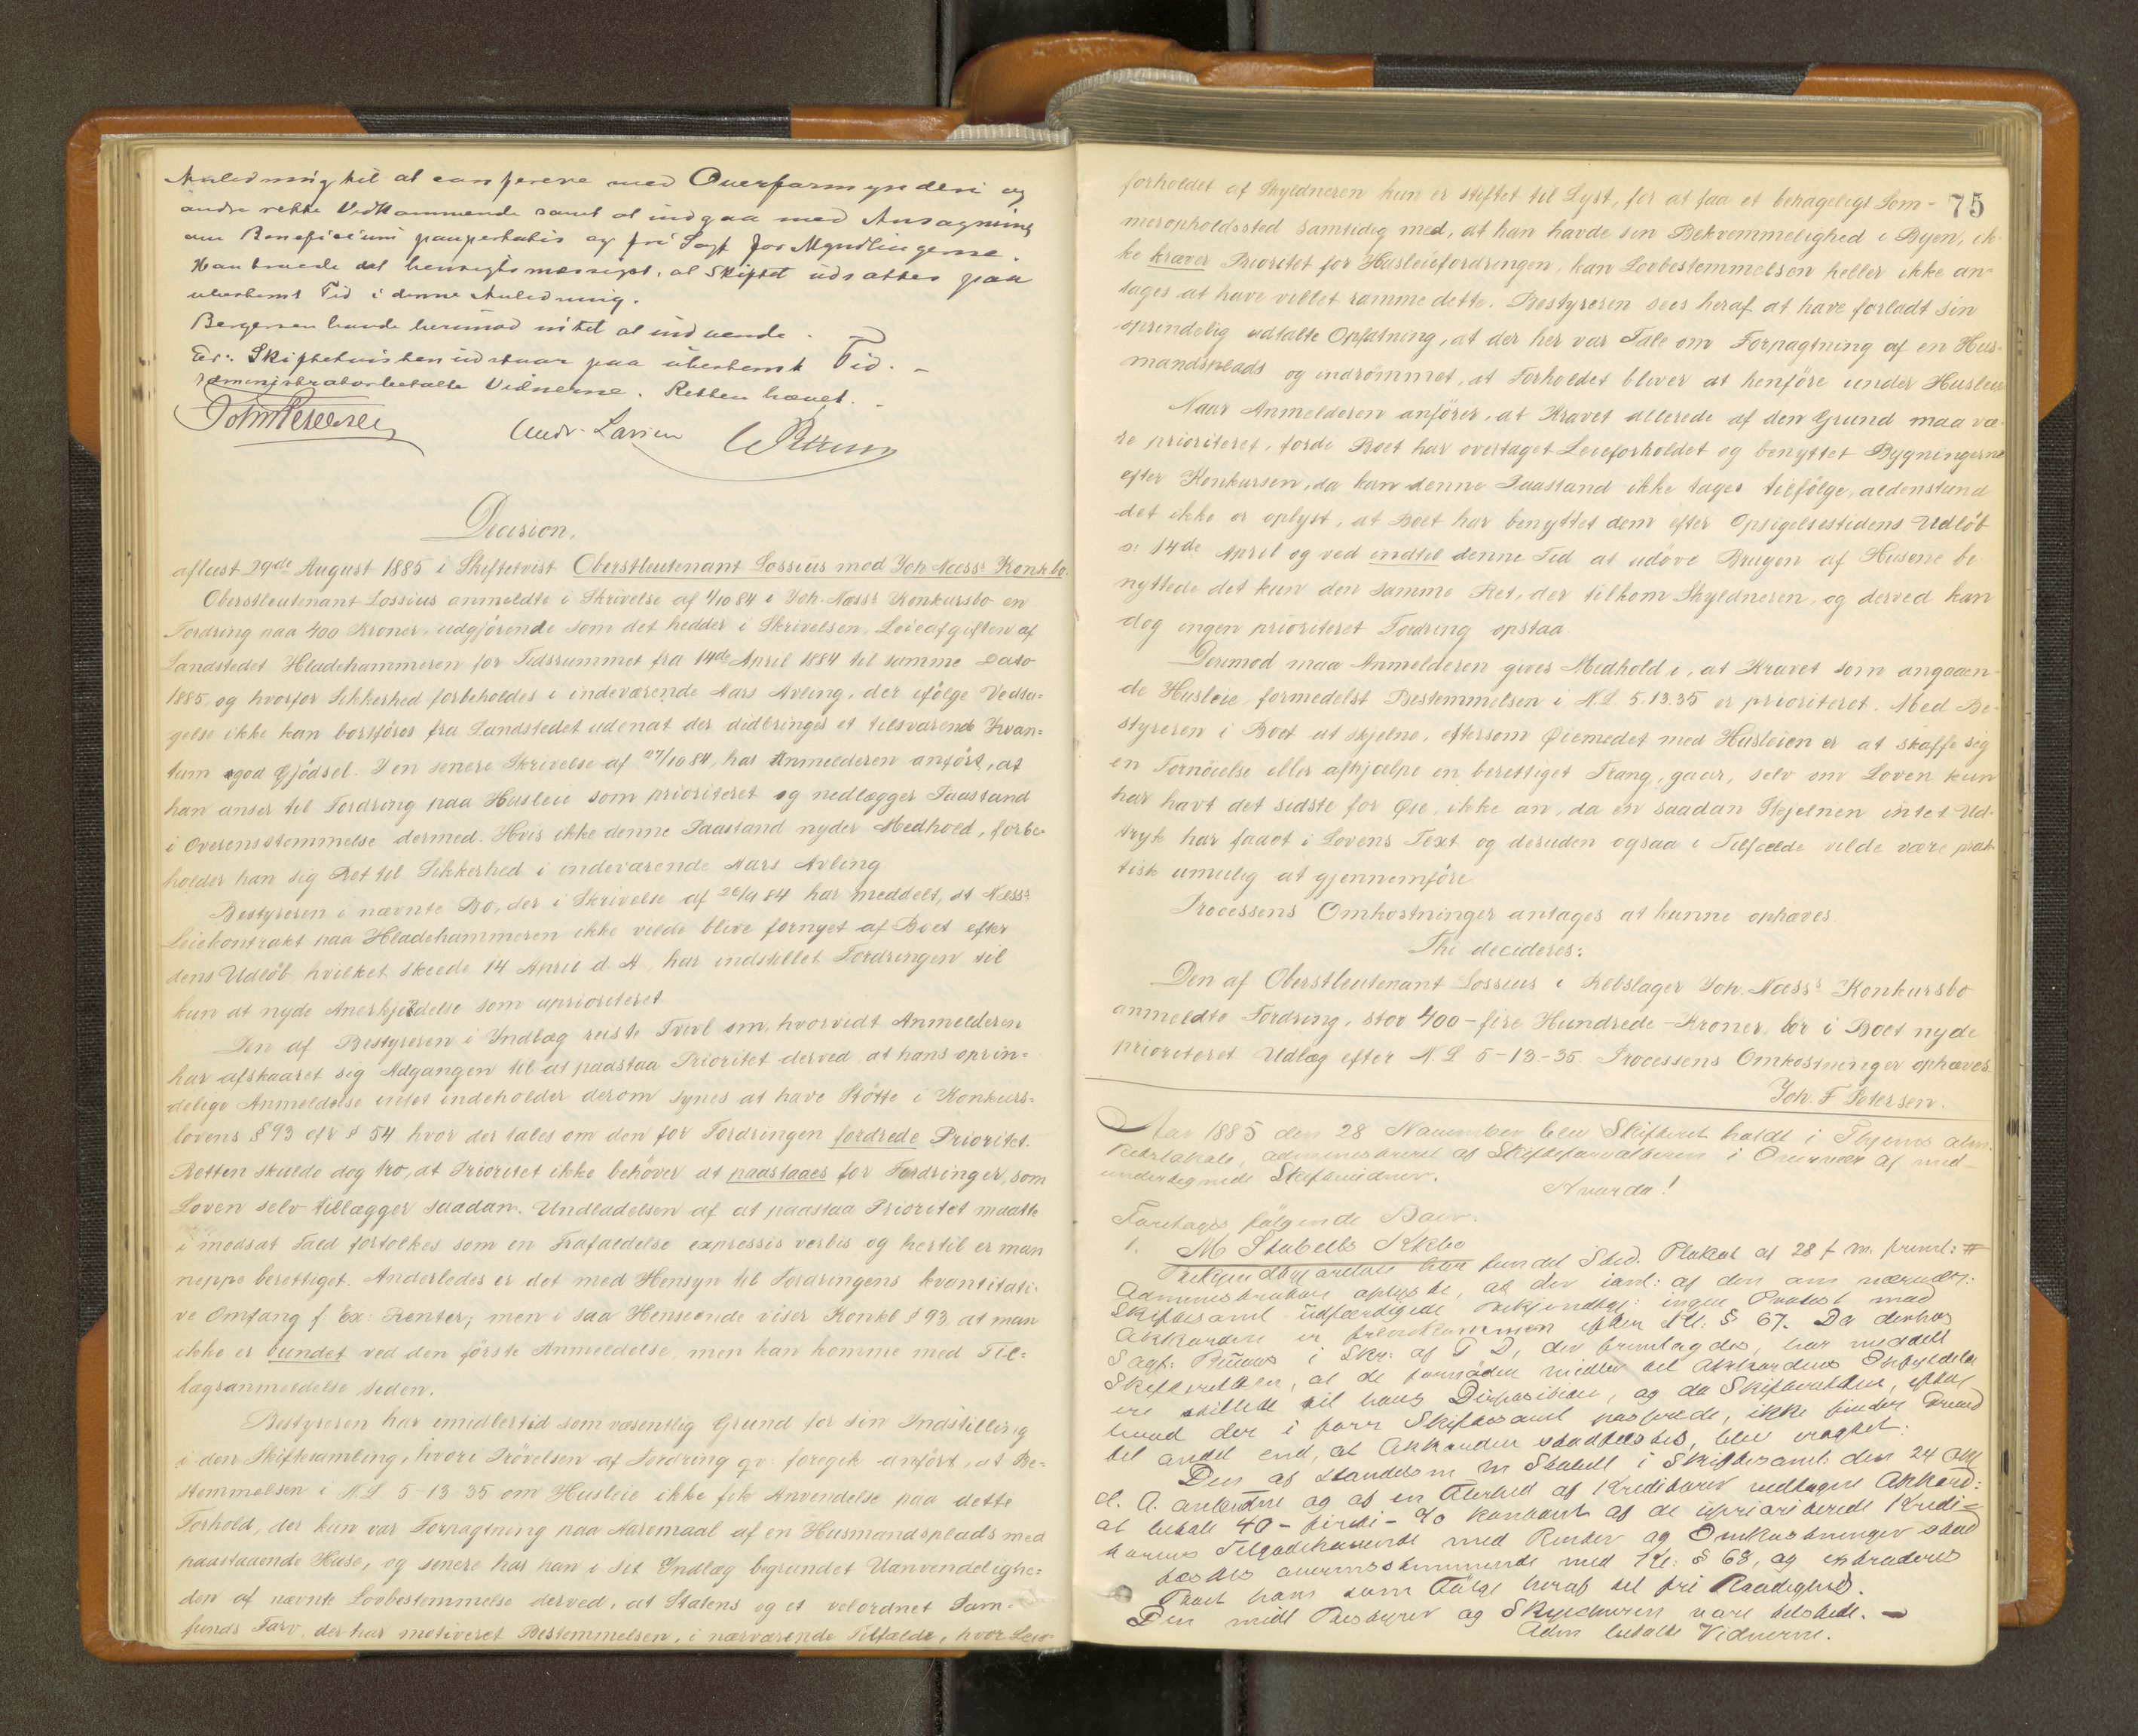 Anledning til at conferere med Overformynderi og
andre rette Vedkommende samt at indgaa med Ansøgning
om Beneficium paupertatis og fri Sagf for Myndlingerne.
Han troede det hensigtsmæssigst, at Skiftet udsattes paa
ubestemt Tid i denne Anledning.
Bergersen havde herimod intet at indvende.
Er: Skiftetvisten udstaar paa ubestemt Tid. -
Administrator betalte Vidnerne. Retten hævet. -
Joh. F. Petersen Andr. Larsen
Decision,
aflæst 29de August 1885 i Skiftetvist Oberstleutenant Lossius mod Joh. Næss's Konkbo.
Oberstleutenant Lossius anmeldte i Skrivelse af 1/10 84 i Joh. Næss's Konkursbo en
Fordring paa 400 Kroner, udgjörende som det hedder i Skrivelsen, Leieafgiften af
Landstedet Hladehammeren for Tidsrummet fra 14de April 1884 til samme Dato
1885, og hvorfor Sikkerhed forbeholdes i indeværende Aars Avling, der ifölge Vedta-
gelse ikke kan bortföres fra Landstedet udenat der didbringes et tilsvarende Kvan-
tum god Gjödsel. I en senere Skrivelse af 27/10 84, har Anmelderen anfört, at
han anser til Fordring paa Husleie som prioriteret og nedlægger Paastand
i Overensstemmelse dermed. Hvis ikke denne Paastand nyder Medhold, forbe-
holder han sig Ret til Sikkerhed i indeværende Aars Avling.
Bestyreren i nævnte Bo, der i Skrivelse af 26/9 84 har meddelt, at Næss's
Leiekontrakt paa Hladehammeren ikke vilde blive fornyet af Boet efter
dens Udlöb, hvilket skeede 14 April d A, har indstillet Fordringen til
kun at nyde Anerkjendelse som uprioriteret
Den af Bestyreren i Indlæg reiste Tvivl om, hvorvidt Anmelderen
har afskaaret sig Adgangen til at paastaa Prioritet derved, at hans oprin-
delige Anmeldelse intet indeholder derom synes at have Stötte i Konkurs-
lovens § 93 cfr § 54 hvor der tales om den for Fordringen fordrede Prioritet.
Retten skulde dog tro, at Prioritet ikke behöver at paastaaes for Fordringer, som
Loven selv tillægger saadan. Undladelsen af at paastaa Prioritet maatte
i modsat Fald fortolkes som en Frafaldelse expressis verbis og hertil er man
neppe berettiget. Anderledes er det med Hensyn til Fordringens kvantitati-
ve Omfang f. Ex: Renter; men i saa Henseende viser Konkl § 93, at man
ikke er bundet ved den förste Anmeldelse, men kan komme med Til-
lægsanmeldelse siden.
Bestyreren har imidlertid som væsentlig Grund for sin Indstilling
i den Skiftesamling, hvori Prövelsen af Fordring qv. foregik anfört, at Be-
stemmelsen i N.L 5-13-35 om Husleie ikke fik Anvendelse paa dette
Forhold, der kun var Forpagtning paa Aaremaal af en Husmandsplads med
paastaaende Huse, og senere har han i sit Indlæg begrundet Uanvendelighe-
den af nævnte Lovbestemmelse derved, at Statens og et velordnet Sam-
funds Tarv, der har motiveret Bestemmelsen, i nærværende Tilfælde, hvor Leie-
75
forholdet af Skyldneren kun er stiftet til Lyst, for at faa et behageligt Som-
meropholdssted samtidig med, at han havde sin Bekvemmelighed i Byen, ik-
ke kræver Prioritet for Husleiefordringen, kan Lovbestemmelsen heller ikke an-
tages at have villet ramme dette. Bestyreren sees heraf at have forladt sin
oprindelig udtalte Opfatning, at der her var Tale om Forpagtning af en Hus-
mandsplads og indrömmet, at Forholdet bliver at henföre under Husleie
Naar Anmelderen anförer, at Kravet allerede af den Grund maa væ-
re prioriteret, fordi Boet har overtaget Leieforholdet og benyttet Bygningerne
efter Konkursen, da kan denne Paastand ikke tages tilfölge, aldenstund
det ikke er oplyst, at Boet har benyttet dem efter Opsigelsestidens Udlöb
o: 14de April og ved indtil denne Tid at udöve Brugen af Husene be-
nyttede det kun den samme Ret, der tilkom Skyldneren, og derved kan
dog ingen prioriteret Fordring opstaa.
Derimod maa Anmelderen gives Medhold i, at Kravet som angaaen-
de Husleie, formedelst Bestemmelsen i N.L. 5.13.35 er prioriteret. Med Be-
styreren i Boet at skjelne, eftersom Øiemedet med Husleien er at skaffe sig
en Fornöielse eller afhjælpe en berettiget Trang, gaar, selv om Loven kun
har havt det sidste for Øie, ikke an, da en saadan Skjelnen intet Ud-
tryk har faaet i Lovens Text og desuden ogsaa i Tilfælde vilde være prak-
tisk umulig at gjennemföre
Processens Omkostninger antages at kunne ophæves.
Thi decideres:
Den af Oberstleutenant Lossius i Rebslager Joh. Næss's Konkursbo
anmeldte Fordring, stor 400 - fire Hundrede - Kroner, bör i Boet nyde
prioriteret Udlæg efter N.L 5-13-35. Processens Omkostninger ophæves.
Joh. F Petersen.
Aar 1885 den 28 November blev Skifteret holdt i Thjems alm.
Retslokale, administreret af Skifteforvalteren i Overvær af med-
undertegnede Skiftevidner.
Hvorda!
Foretages fölgende Boer.
1. M Stabells Kkbo
Bekjendtgjørelse kundet Sted. Plakat af 28 f. M. freml: #
Administrator oplyste, at der iaml: af den om nærvær:
Skiftesaml udfærdigede Bekjendtgj: ingen Protest mod
Akkorden er fremkommen efter Kl: § 67. Da derhos
Sagf: i Skr: af D, der fremlagdes, har meddelt
Skifteretten, at de fornödne Midler til Akkordens Opfyldelse
ere stillede til hans Disposition, og da Skifteretten, efter
hvad der i forr Skiftesaml passerede, ikke finder Grund
til andet end, at Akkorden stadfæstes, blev eragtet:
Den af Handelsm M Stabell i Skiftesaml: den 24 Okt
d. A. anbudne og af en Flerhed af Kreditorer vedtagne Akkord:
at betale 40 - firti - % kontant af de uprioriterede Kredi-
torers Tilgodehavende med Renter og Omkostninger stad-
fæstes overensstemmende med Kl: § 68, og extraderes
Boet ham som Fölge heraf til fri Raadighed.
Den midl Bestyrer og Skyldneren vare tilstede. -
Adm betalte Vidnerne.